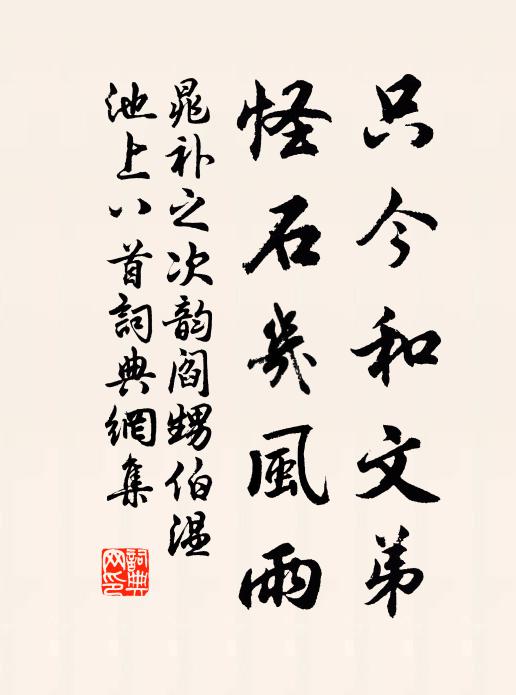 只今和文弟
怪石幾風雨
晁补之次韵阎甥伯温
池上八首詞典網集
詞典
网印